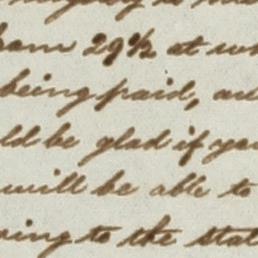 ham 29½ at wh
being paid, an
ld be glad if you
will be able to
wing to the stat